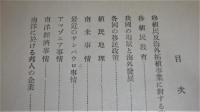 目次
移植民及海外拓殖事業に對する
移植民教育
我國の地狀と海外發展
各國の移民政策
植民地理
南米事情
最近のサンパウロ事情
アマゾニア事情
南洋經濟事情
南洋に於ける邦人の企業